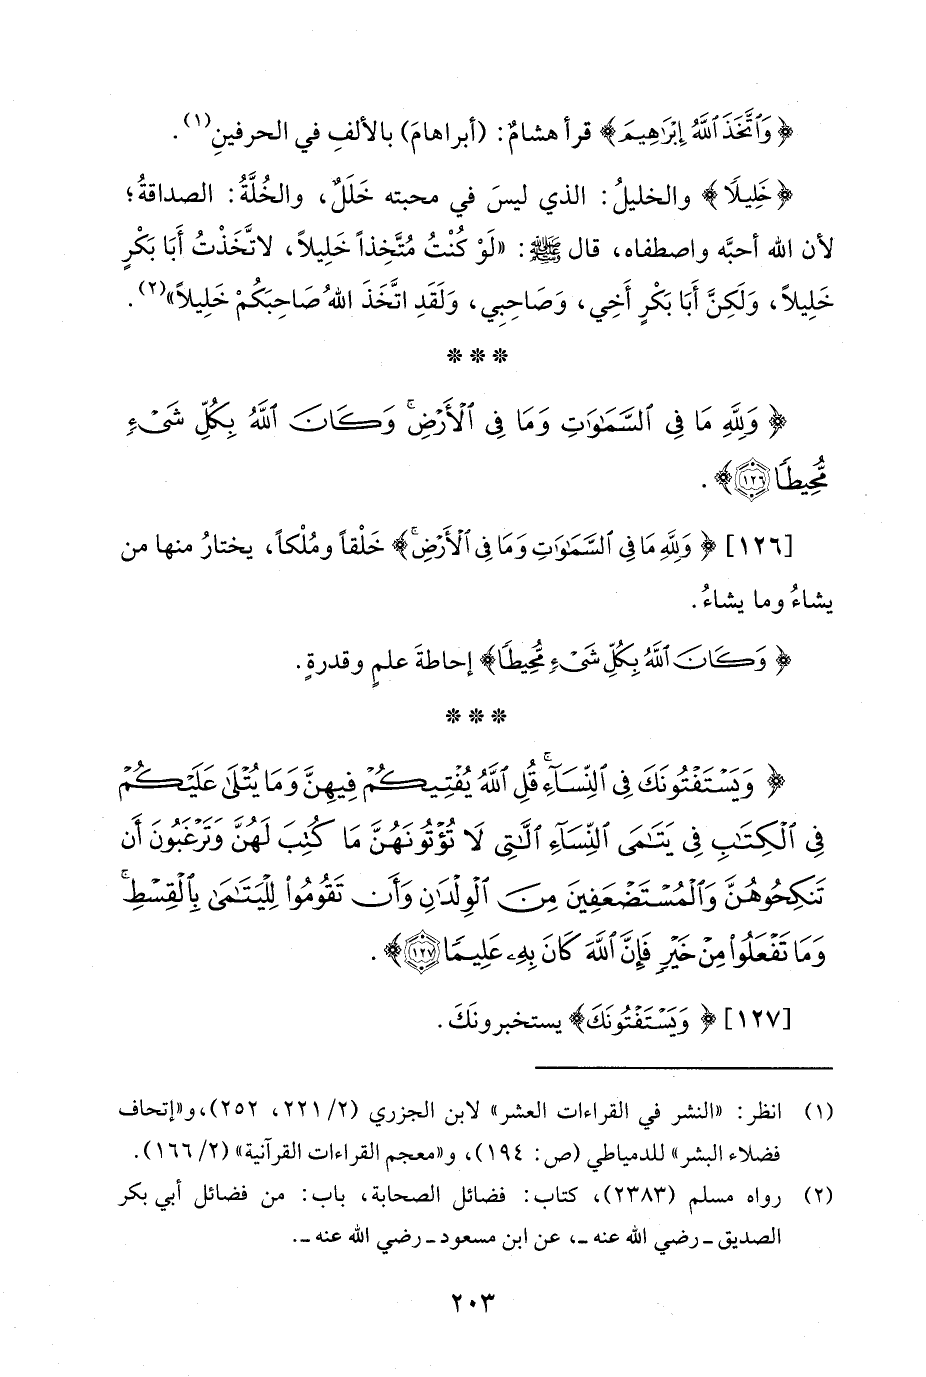 ﴿وَاتَّخَذَ اللَّهُ إِبْرَاهِيمَ﴾ قرأ هشامٌ: (أبراهامَ) بالألفِ في الحرفينِ(١).
﴿خَلِيلًا﴾ والخليلُ: الذي ليسَ في محبته خَلَلٌ، والخُلَّةُ: الصداقةُ؛
لأن الله أحبَّه واصطفاه، قال ﷺ: «لَوْ كُنْتُ مُتَّخِذاً خَلِيلاً، لاتَّخَذْتُ أَبَا بَكْرٍ
خَلِيلاً، وَلَكِنَّ أَبَا بَكْرٍ أَخِي، وَصَاحِبِي، وَلَقَدِ اتَّخَذَ اللهُ صَاحِبَكُمْ خَلِيلاً»(٢).
***
﴿وَلِلَّهِ مَا فِي السَّمَٰوَٰتِ وَمَا فِي الْأَرْضِۚ وَكَانَ اللَّهُ بِكُلِّ شَيْءٍ
مُّحِيطًا ١٢٦﴾.
[١٢٦] ﴿وَلِلَّهِ مَا فِي السَّمَٰوَٰتِ وَمَا فِي الْأَرْضِۚ﴾ خَلْقاً ومُلْكاً، يختارُ منها من
يشاءُ وما يشاءُ.
﴿وَكَانَ اللَّهُ بِكُلِّ شَيْءٍ مُّحِيطًا﴾ إحاطةَ علمٍ وقدرةٍ.
***
﴿وَيَسْتَفْتُونَكَ فِي النِّسَآءِۚ قُلِ اللَّهُ يُفْتِيكُمْ فِيهِنَّ وَمَا يُتْلَىٰ عَلَيْكُمْ
فِي الْكِتَٰبِ فِي يَتَٰمَى النِّسَآءِ الَّٰتِي لَا تُؤْتُونَهُنَّ مَا كُتِبَ لَهُنَّ وَتَرْغَبُونَ أَن
تَنكِحُوهُنَّ وَالْمُسْتَضْعَفِينَ مِنَ الْوِلْدَٰنِ وَأَن تَقُومُوا۟ لِلْيَتَٰمَىٰ بِالْقِسْطِۚ
وَمَا تَفْعَلُوا۟ مِنْ خَيْرٍ فَإِنَّ اللَّهَ كَانَ بِهِۦ عَلِيمًا ١٢٧﴾.
[١٢٧] ﴿وَيَسْتَفْتُونَكَ﴾ يستخبرونَكَ.
(١) انظر: «النشر في القراءات العشر» لابن الجزري (٢/ ٢٢١، ٢٥٢)،و«إتحاف
فضلاء البشر» للدمياطي (ص: ١٩٤)، و«معجم القراءات القرآنية» (٢/ ١٦٦).
(٢) رواه مسلم (٢٣٨٣)، كتاب: فضائل الصحابة، باب: من فضائل أبي بكر
الصديق ـ رضي الله عنه ـ، عن ابن مسعود ـ رضي الله عنه ـ.
٢٠٣